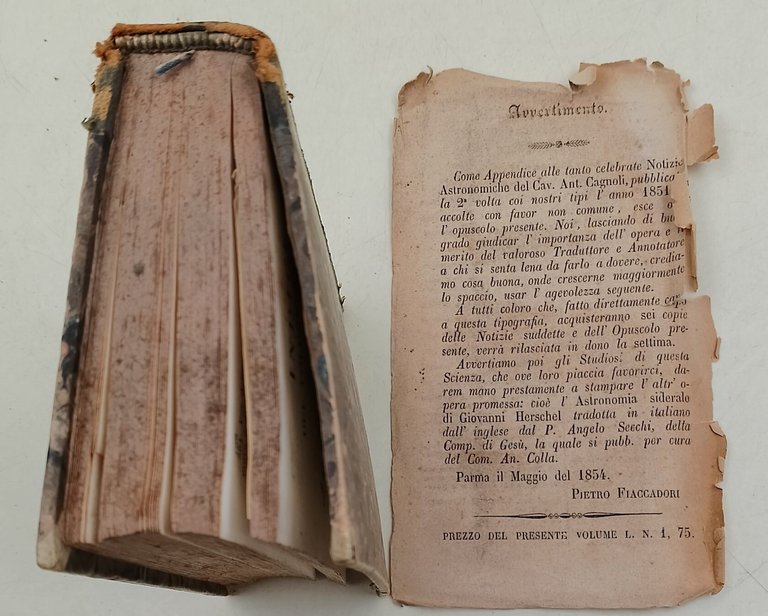 Avvertimento.
Come Appendice alle tanto celebrate Notizie
Astronomiche del Cav. Ant. Cagnoli, pubblica
la 2ª volta coi nostri tipi l' anno 1851
accolte con favor non comune, esce o
l' opuscolo presente. Noi, lasciando di buo
grado giudicar l' importanza dell' opera e
merito del valoroso Traduttore e Annotatore
a chi si senta lena da farlo a dovere, credia-
mo cosa buona, onde crescerne maggiormente
lo spaccio, usar l' agevolezza seguente.
A tutti coloro che, fatto direttamente capo
a questa tipografia, acquisteranno sei copie
delle Notizie suddette e dell' Opuscolo pre-
sente, verrà rilasciata in dono la settima.
Avvertiamo poi gli Studiosi di questa
Scienza, che ove loro piaccia favorirci, da-
rem mano prestamente a stampare l' altr' o-
pera promessa: cioè l' Astronomia siderale
di Giovanni Herschel tradotta in italiano
dall' inglese dal P. Angelo Secchi, della
Comp. di Gesù, la quale si pubb. per cura
del Com. An. Colla.
Parma il Maggio del 1854.
PIETRO FIACCADORI
PREZZO DEL PRESENTE VOLUME L. N. 1, 75.